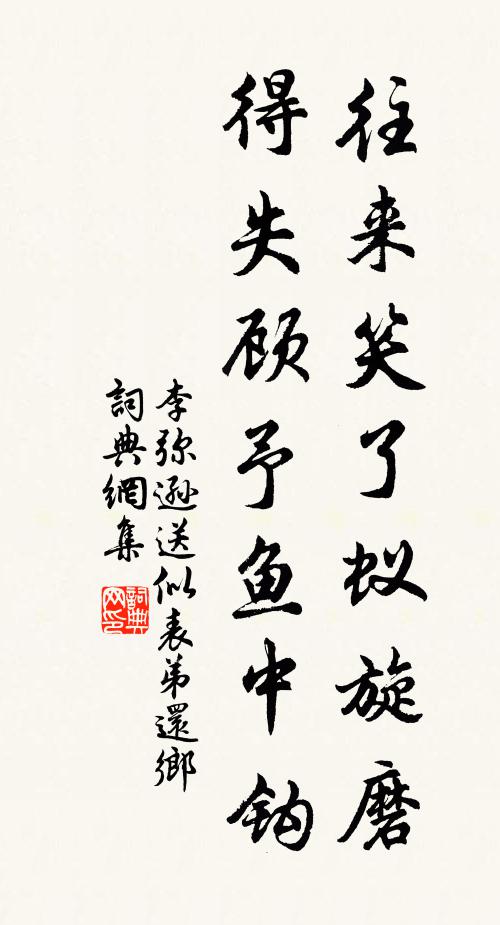 往来笑了蚁旋磨
得失顾予鱼中钩
李弥逊送似表弟還鄉
詞典網集
詞典
网印